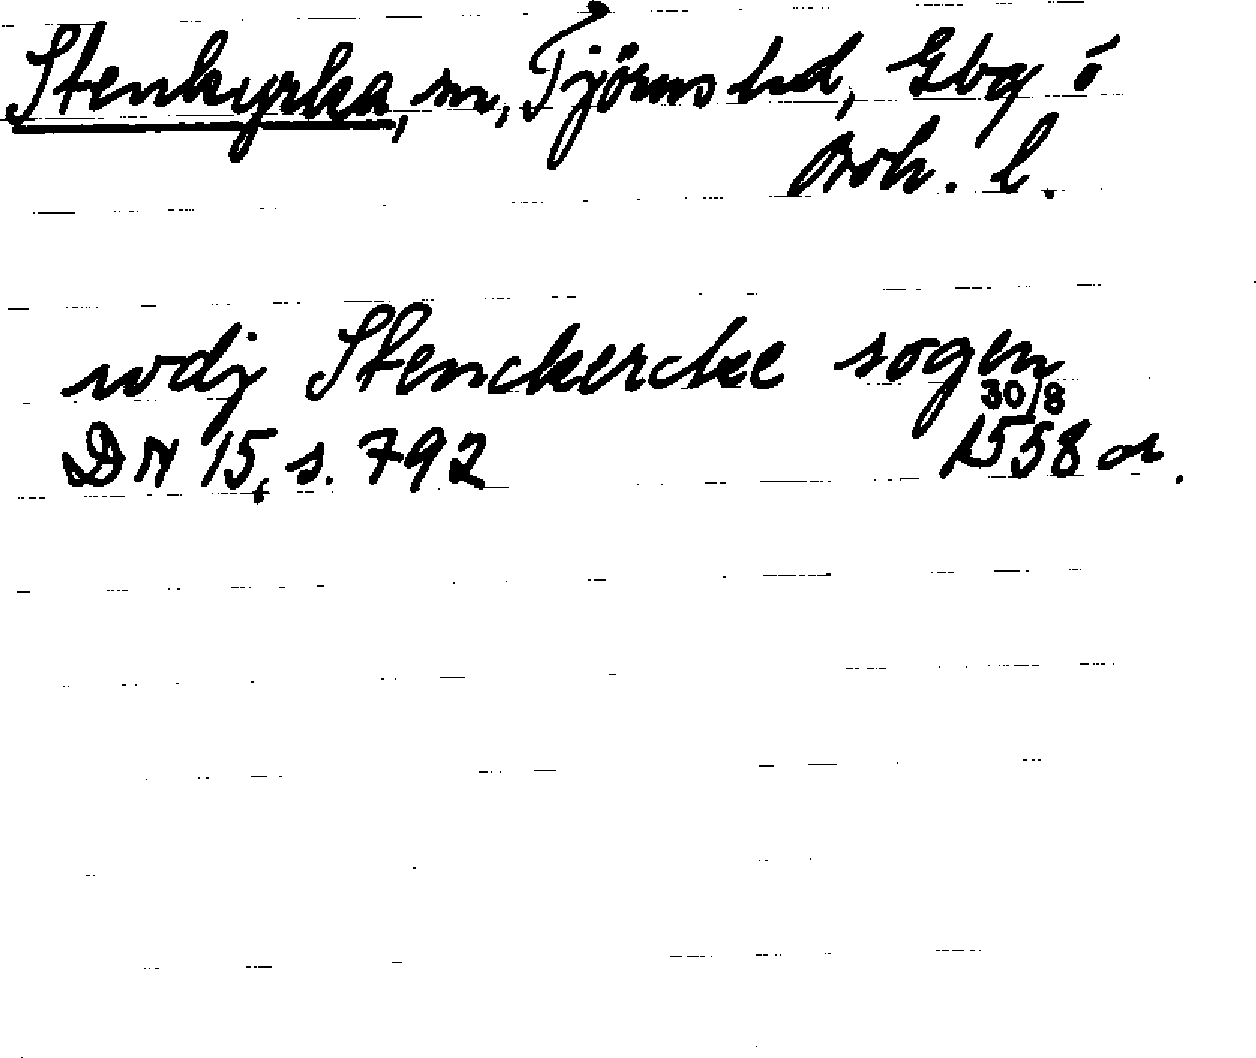 Stenkyrka, sn, Tjörns hd, Gbg o
Boh. l.
wdj Stenckercke sogen
30/8
DN 15, s. 792 1558 or.